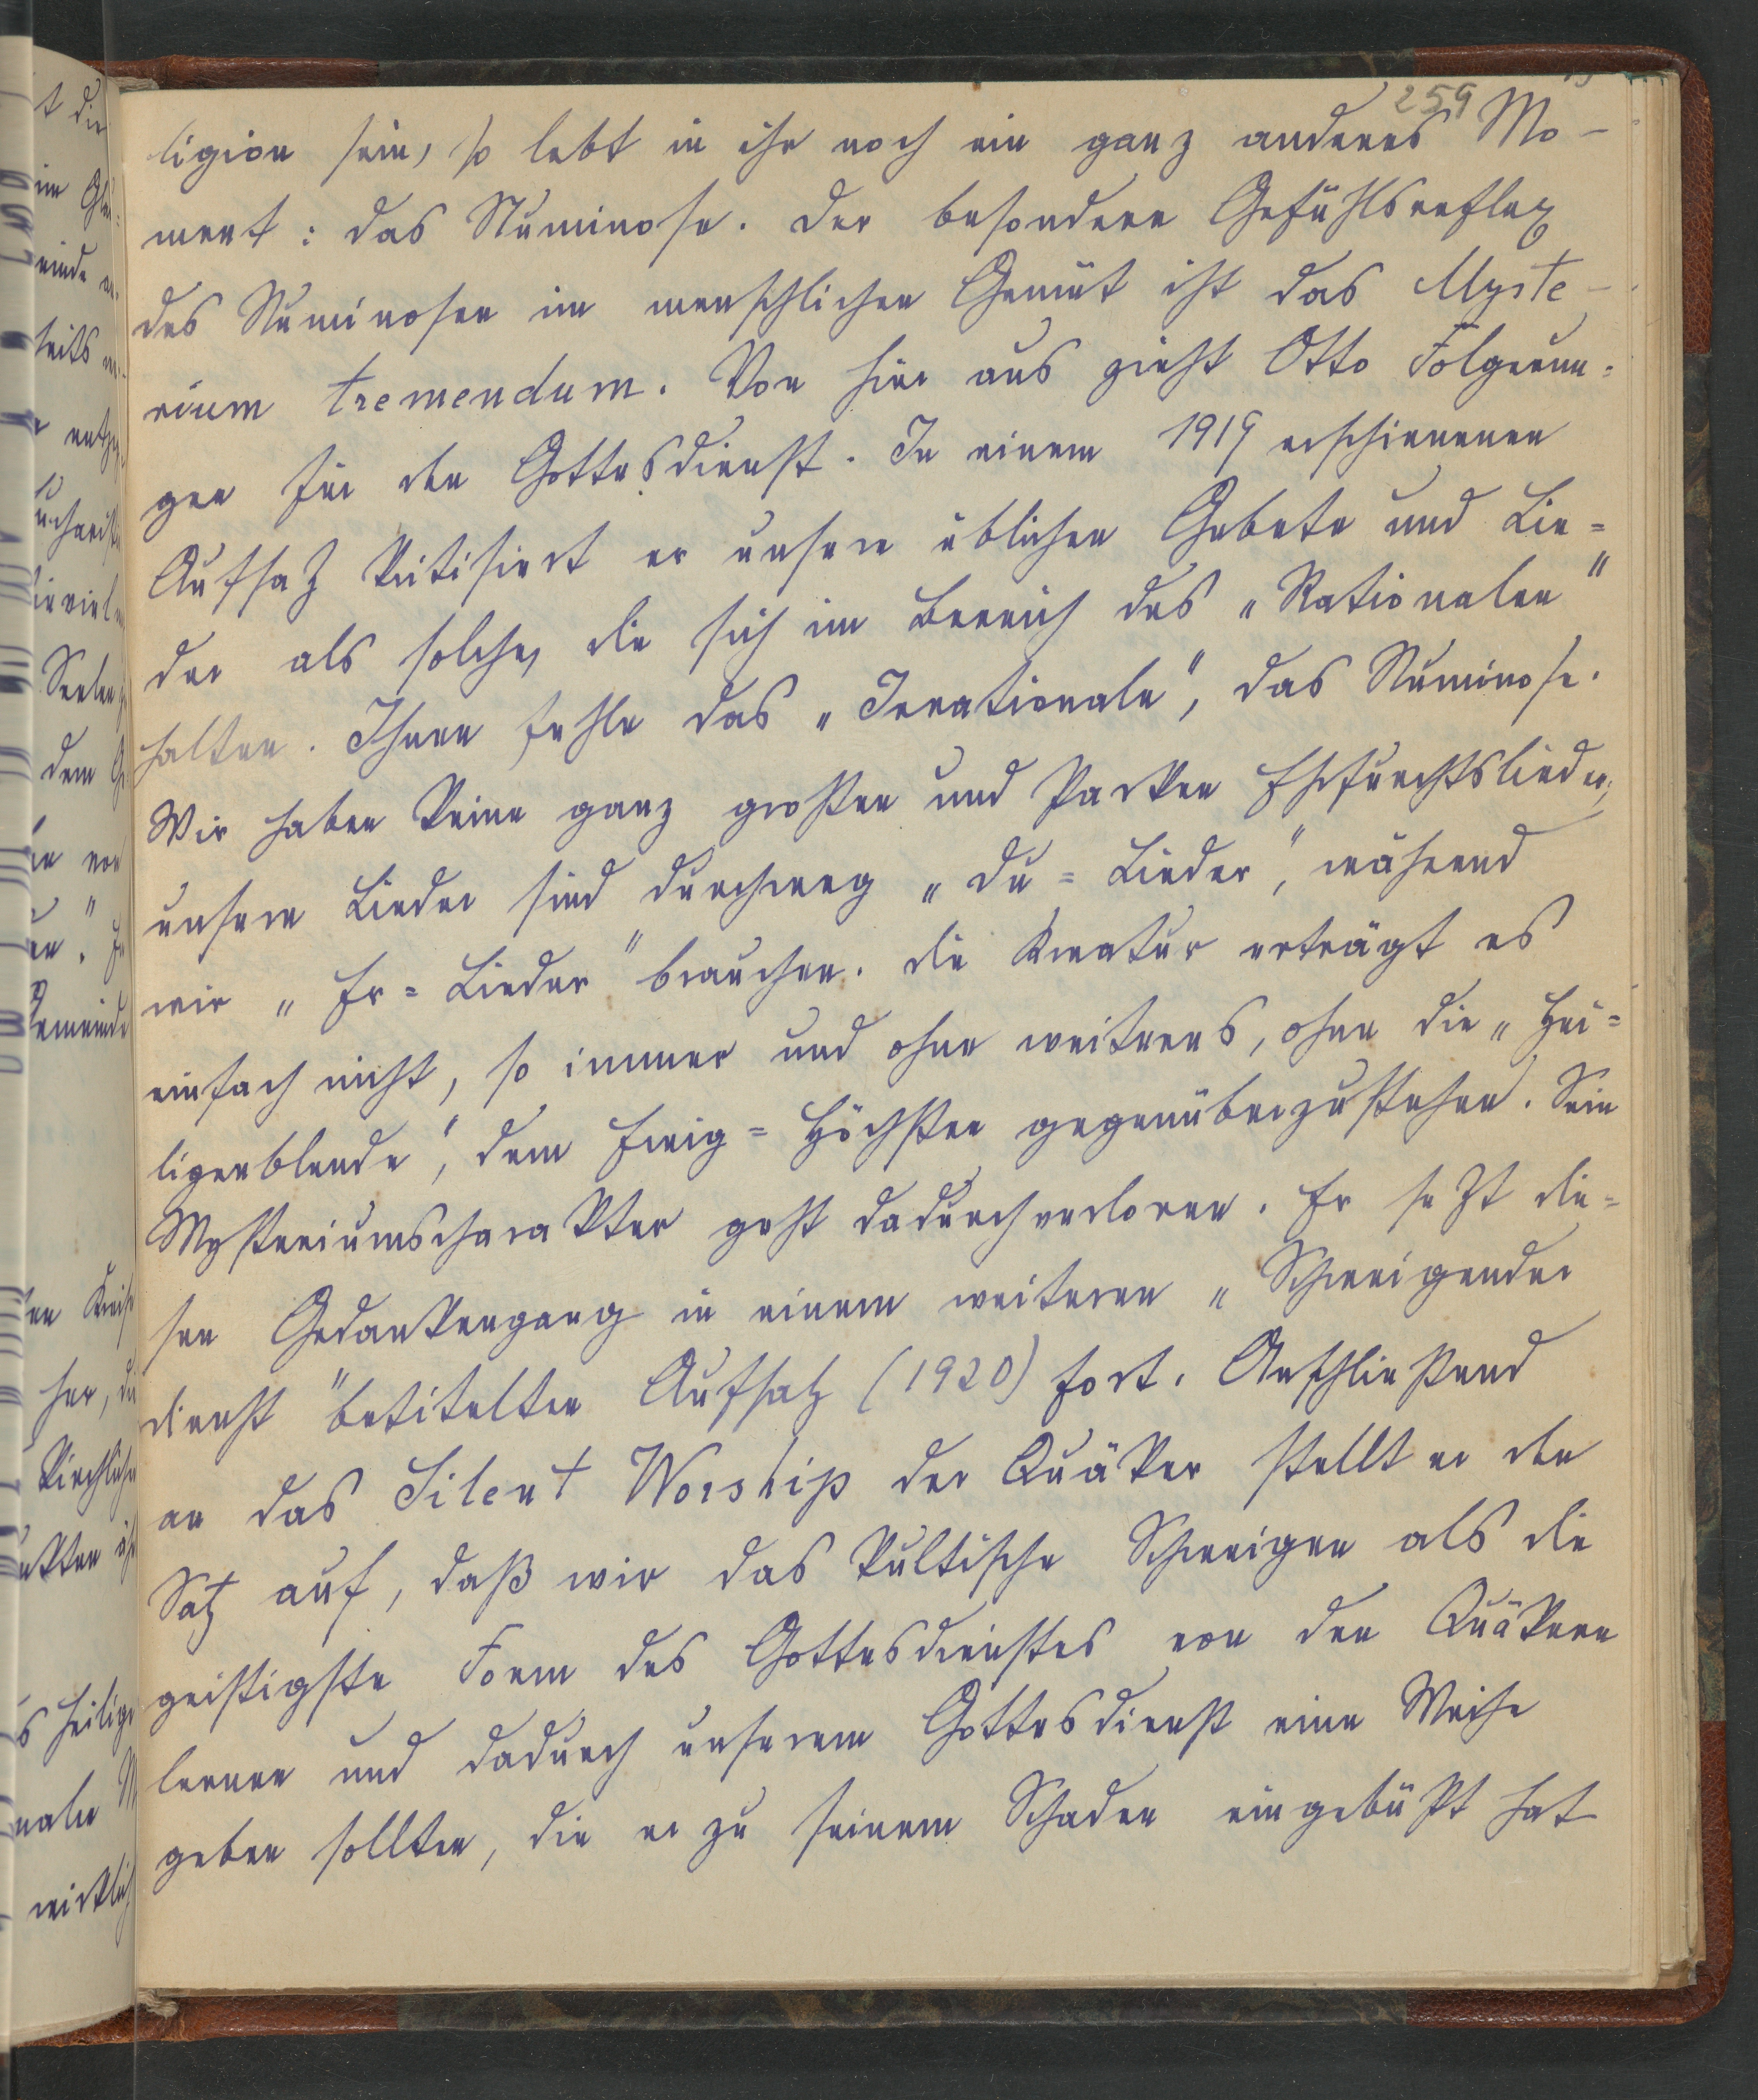 259
ligion sein, so lebt in ihr noch ein ganz anderes Mo-
ment: das Numinose. Der besondere Gefühlsreflex
des Numinosen im menschlichen Gemüt ist das Myste-
rium tremendum. Von hier aus zieht Otto Folgerun=
gen für den Gottesdienst. In einem 1919 erschienenen
Aufsatz kritisiert er unsere üblichen Gebete und Lie=
der als solche, die sich im Bereich des „Rationalen"
halten. Ihnen fehle das „Irrationale", das Numinose.
Wir haben keine ganz großen und starken Ehrfurchtslieder,
unsere Lieder sind durchweg „Du=Lieder", während
wir „Er=Lieder" brauchen. Die Kreatur erträgt es
einfach nicht, so immer und ohne weiteres, ohne die „Hei=
ligenblende", dem Ewig=Höchsten gegenüberzustehen. Sein
Mysteriumscharakter geht dadurch verloren. Er setzt die=
sen Gedankengang in einem weiteren „Schweigender
Dienst" betitelten Aufsatz (1920) fort. Anschließend
an das Silent Worship der Quäker stellt er den
Satz auf, daß wir das kultische Schweigen als die
geistigste Form des Gottesdienstes von den Quäkern
lernen und dadurch unserem Gottesdienst eine Weihe
geben sollten, die er zu seinem Schaden eingebüßt hat